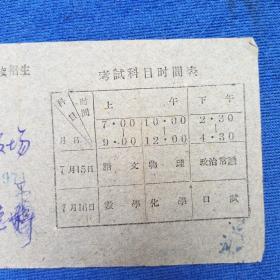 招生
考試科目时間表
科目 时間 上午 下午
月日 7·00 10·00 2·30
9·00 12·00 4·30
7月15日 語文 物理 政治常識
7月16日 数學 化學 口試
场